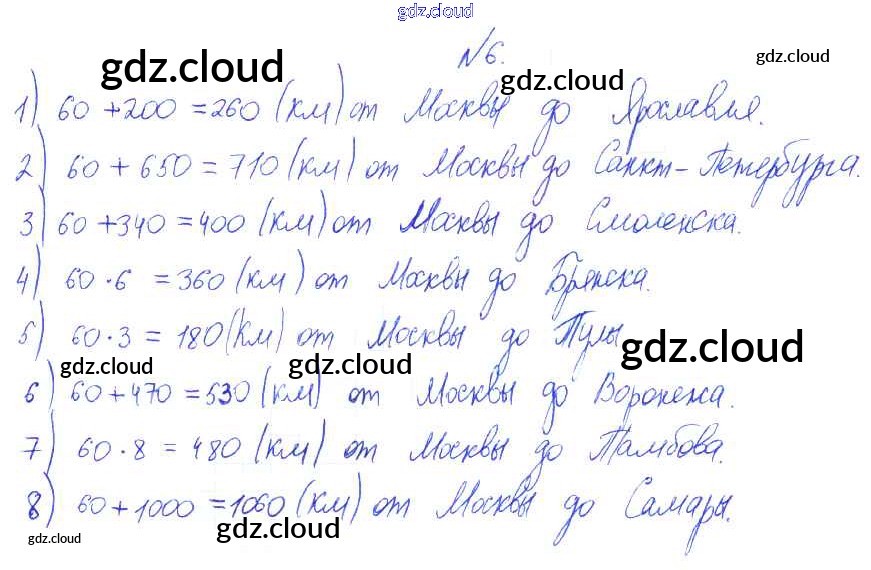 gdz.cloud
№6.
gdz.cloud gdz.cloud gdz.cloud
1) 60 + 200 = 260 (км) от Москвы до Ярославля.
2) 60 + 650 = 710 (км) от Москвы до Санкт-Петербурга.
3) 60 + 340 = 400 (км) от Москвы до Смоленска.
4) 60 · 6 = 360 (км) от Москвы до Брянска.
5) 60 · 3 = 180 (км) от Москвы до Тулы
gdz.cloud gdz.cloud gdz.cloud
6) 60 + 470 = 530 (км) от Москвы до Воронежа.
7) 60 · 8 = 480 (км) от Москвы до Тамбова.
8) 60 + 1000 = 1060 (км) от Москвы до Самары.
gdz.cloud gdz.cloud